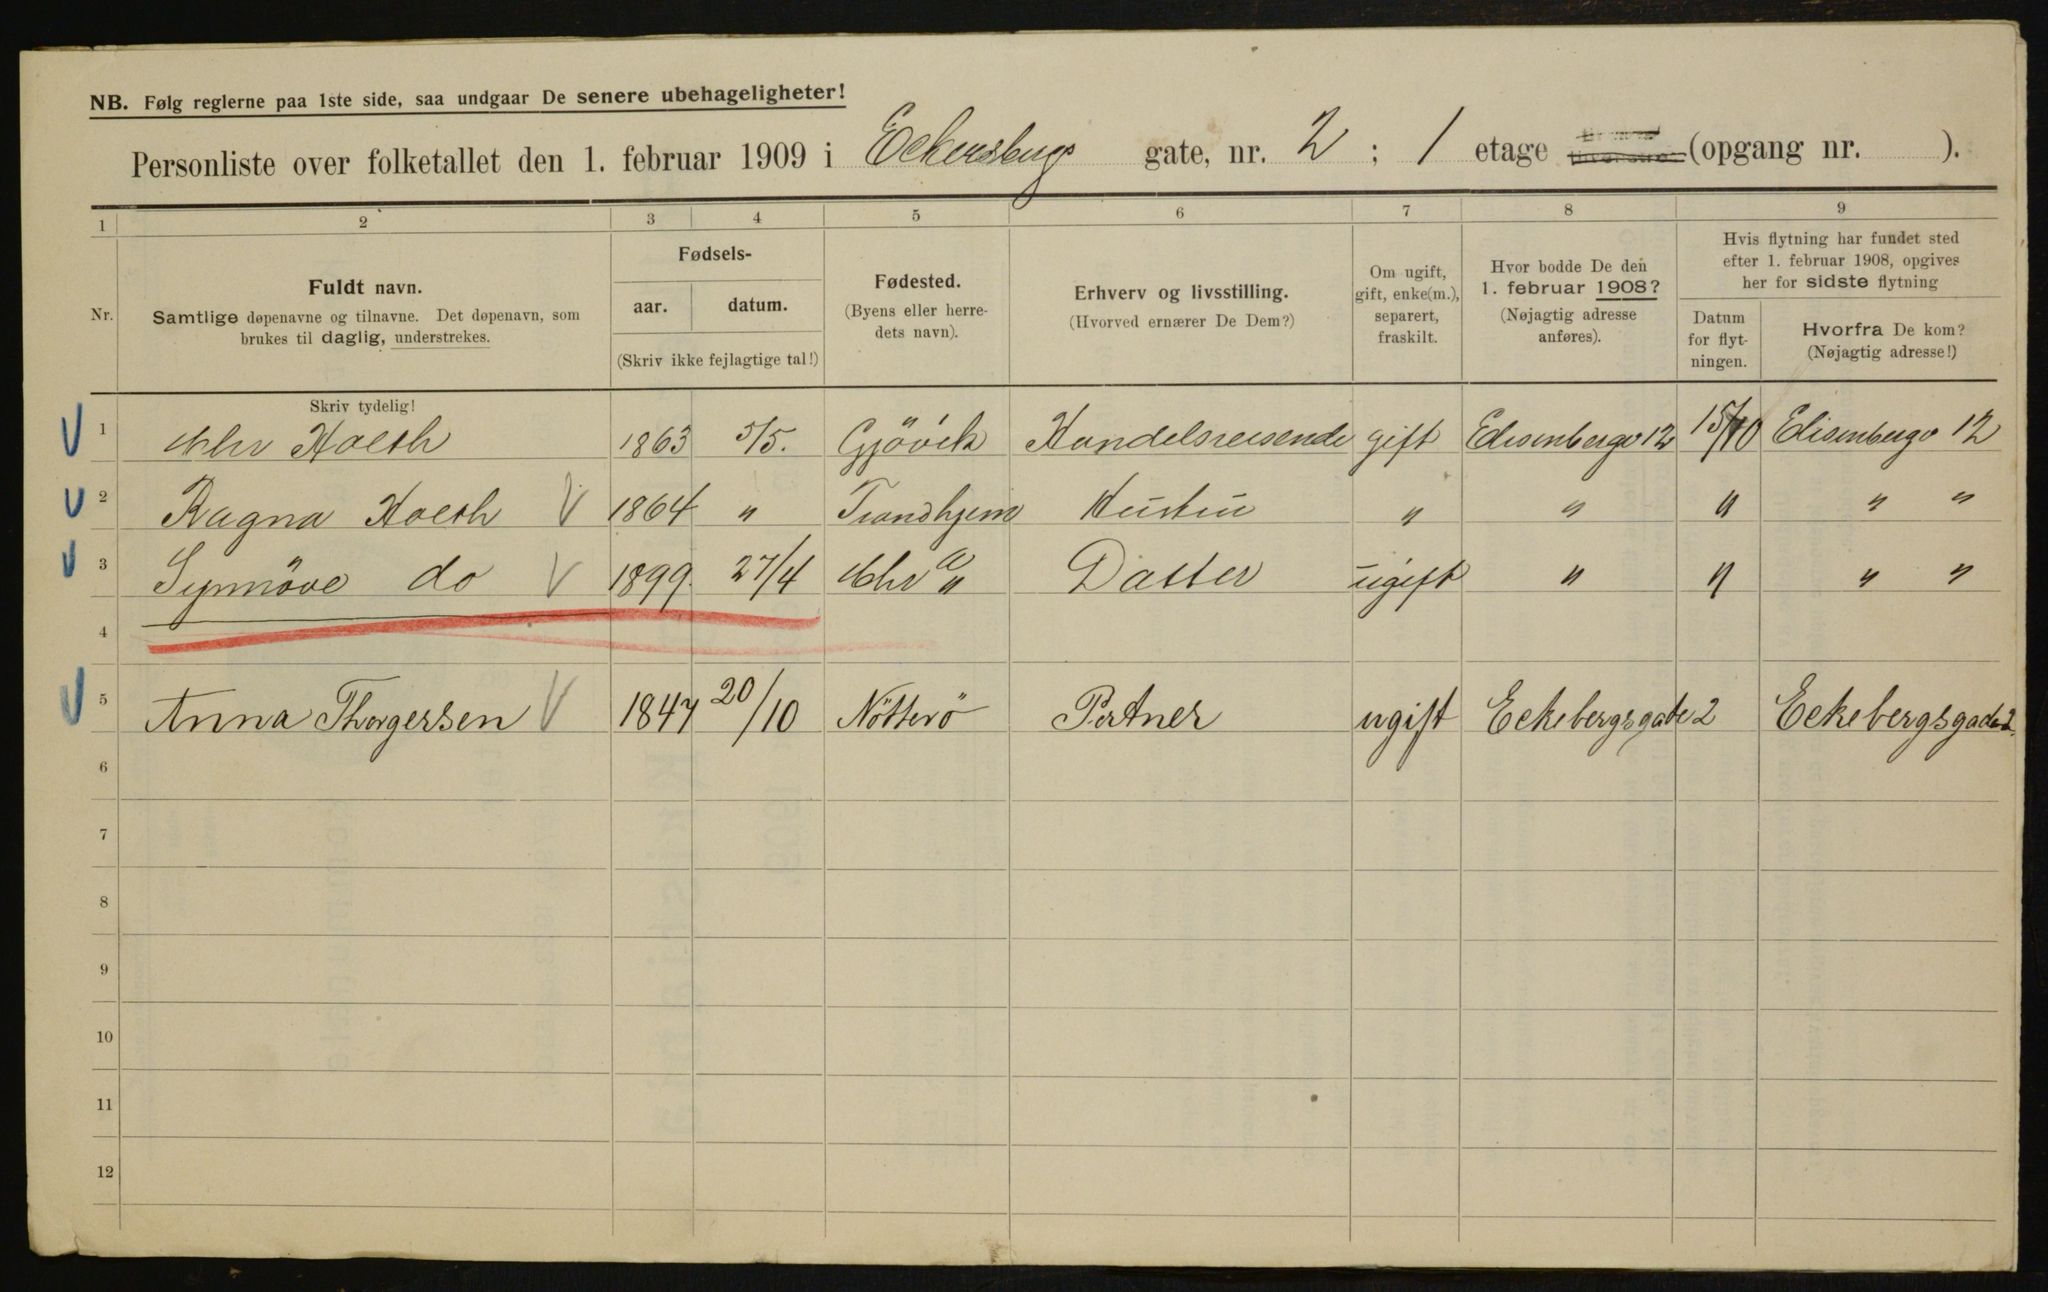 NB. Følg reglerne paa 1ste side, saa undgaar De senere ubehageligheter!
Personliste over folketallet den 1. februar 1909 i Eckersbergs gate, nr. 2 ; 1 etage (opgang nr. ).
1 2 3 4 5 6 7 8 9
Nr.
Fuldt navn.
Samtlige døpenavne og tilnavne. Det døpenavn, som
brukes til daglig, understrekes.
Skriv tydelig!
Fødsels-
aar. datum.
(Skriv ikke fejlagtige tal!)
Fødested.
(Byens eller herre-
dets navn).
Erhverv og livsstilling.
(Hvorved ernærer De Dem?)
Om ugift,
gift, enke(m.),
separert,
fraskilt.
Hvor bodde De den
1. februar 1908?
(Nøjagtig adresse
anføres).
Hvis flytning har fundet sted
efter 1. februar 1908, opgives
her for sidste flytning
Datum
for flyt-
ningen.
Hvorfra De kom?
(Nøjagtig adresse!)
1 Chr Holth 1863 5/5. Gjövik Handelsreisende gift Elisenbergv 12 15/10 Elisenbergv 12
2 Ragna Holth V 1864 " Trondhjem Hustru " " " " "
3 Synnöve do V 1899. 27/4 Chr a " Datter ugift " " " "
4
5 Anna Thorgersen V 1847 20/10 Nötterö Portner ugift Eckebergsgade 2 Eckebergsgade 2.
6
7
8
9
10
11
12